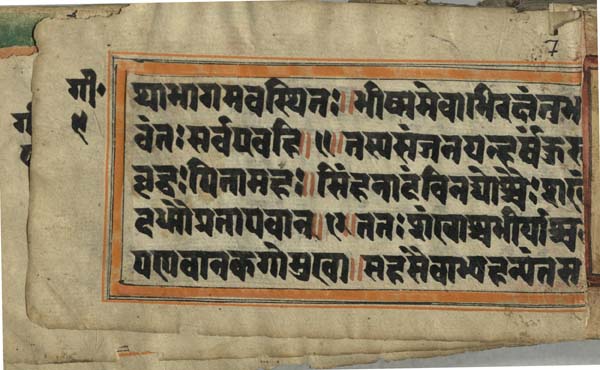 7
गी॰
५
थाभागमवस्थितः॥भीष्ममेवाभिरक्षंतुभ
वंतः सर्वएवहि॥१॥तस्यसंजनयन्हर्षंकुरु
वृद्धः पितामहः॥सिंहनादंविनद्योच्चैः शंखं
दध्मौप्रतापवान्॥२॥ततः शंखाश्चभेर्यश्च
पणवानकगोमुखाः॥सहसैवाभ्यहन्यंतस